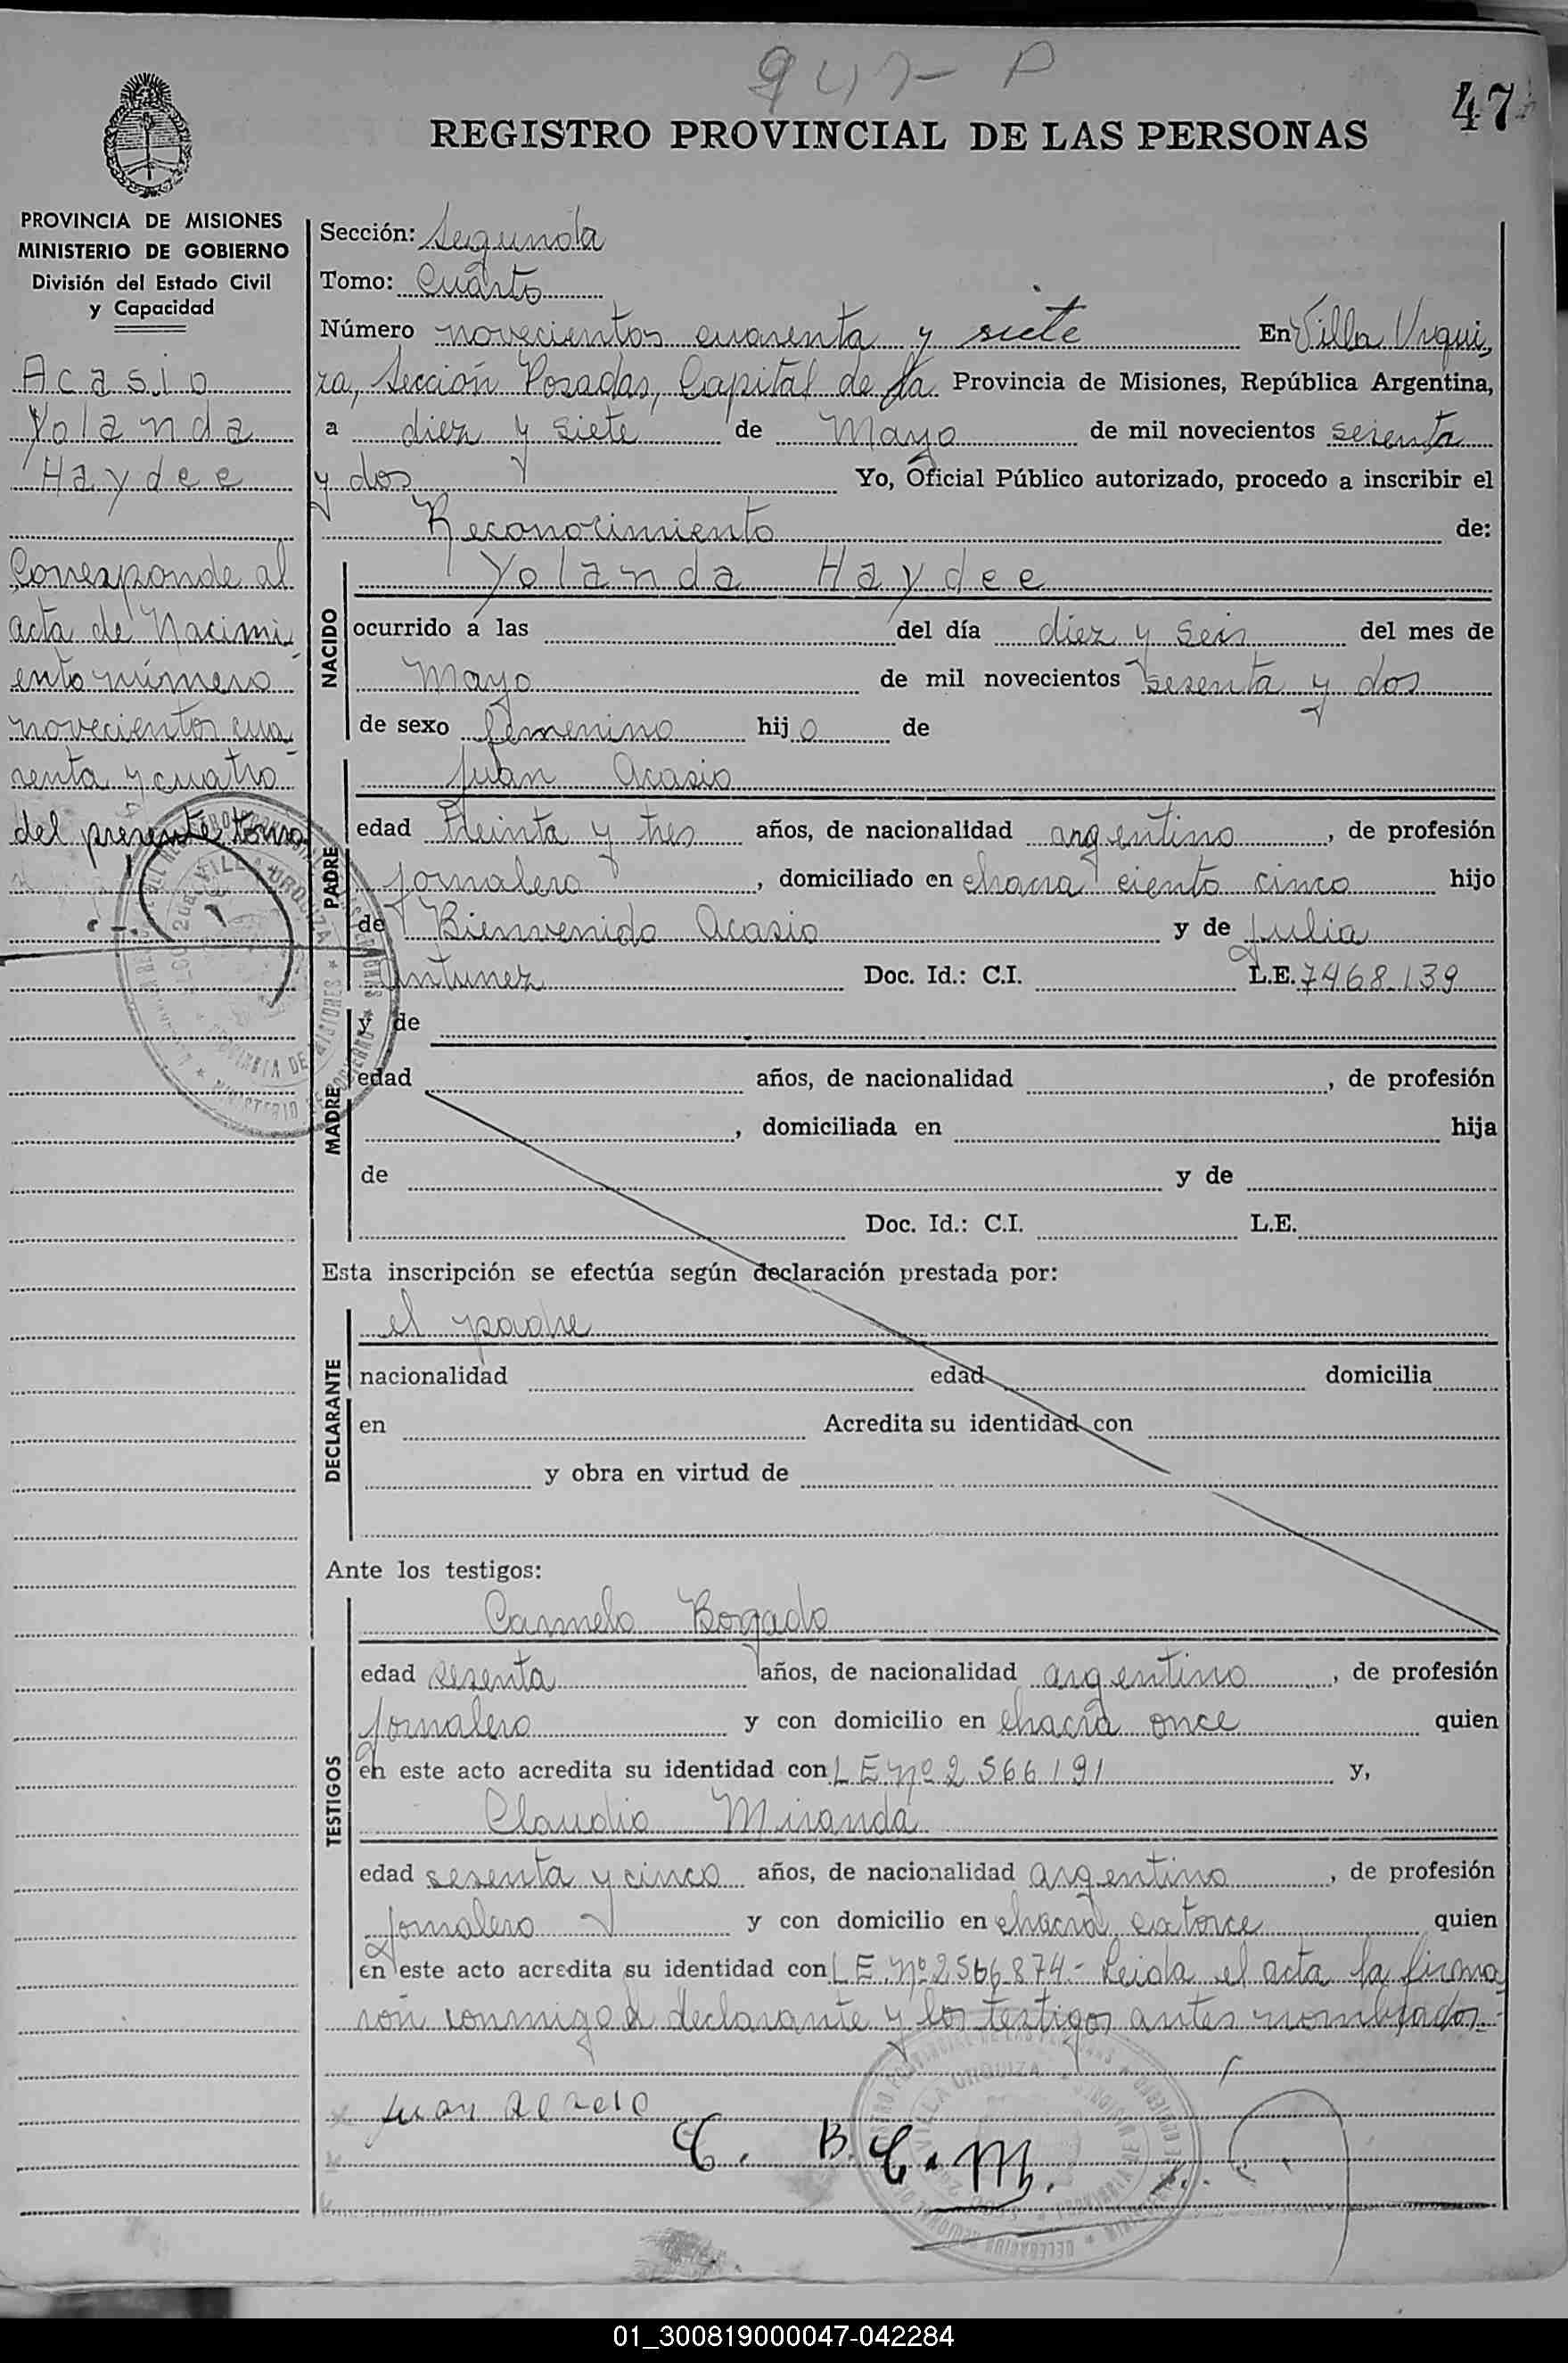 947- P
47
REGISTRO PROVINCIAL DE LAS PERSONAS
PROVINCIA DE MISIONES
MINISTERIO DE GOBIERNO
División del Estado Civil
y Capacidad
Acasio
Yolanda
Haydee
Corresponde al
acta de Nacimi
ento número
novecientos cua
renta y cuatro
del presente tomo
Sección: Segunda
Tomo: Cuarto
Número novecientos cuarenta y siete En Villa Urqui
za, Sección Posadas, Capital de la Provincia de Misiones, República Argentina,
a diez y siete de Mayo de mil novecientos sesenta
y dos Yo, Oficial Público autorizado, procedo a inscribir el
Reconocimiento de:
NACIDO
Yolanda Haydee
ocurrido a las del día diez y seis del mes de
Mayo de mil novecientos sesenta y dos
de sexo femenino hijo de
PADRE
Juan Acasio
edad treinta y tres años, de nacionalidad argentino, de profesión
jornalero, domiciliado en chacra ciento cinco hijo
de Bienvenido Acasio y de Julia
Antunez Doc. Id.: C.I. L.E. 7468.139
MADRE
y de
edad años, de nacionalidad , de profesión
, domiciliada en hija
de y de
Doc. Id.: C.I. L.E.
Esta inscripción se efectúa según declaración prestada por:
DECLARANTE
el padre
nacionalidad edad domicilia
en Acredita su identidad con
y obra en virtud de
Ante los testigos:
TESTIGOS
Carmelo Bogado
edad sesenta años, de nacionalidad argentino, de profesión
jornalero y con domicilio en chacra once quien
en este acto acredita su identidad con LE Nº 2566191 y,
Claudio Miranda
edad sesenta y cinco años, de nacionalidad argentino, de profesión
jornalero y con domicilio en chacra catorce quien
en este acto acredita su identidad con LE Nº 2566874.- Leida el acta la firma
ron conmigo el declarante y los testigos antes nombrados.-
Juan
C. B. C. M.
VILLA URQUIZA
01_300819000047-042284